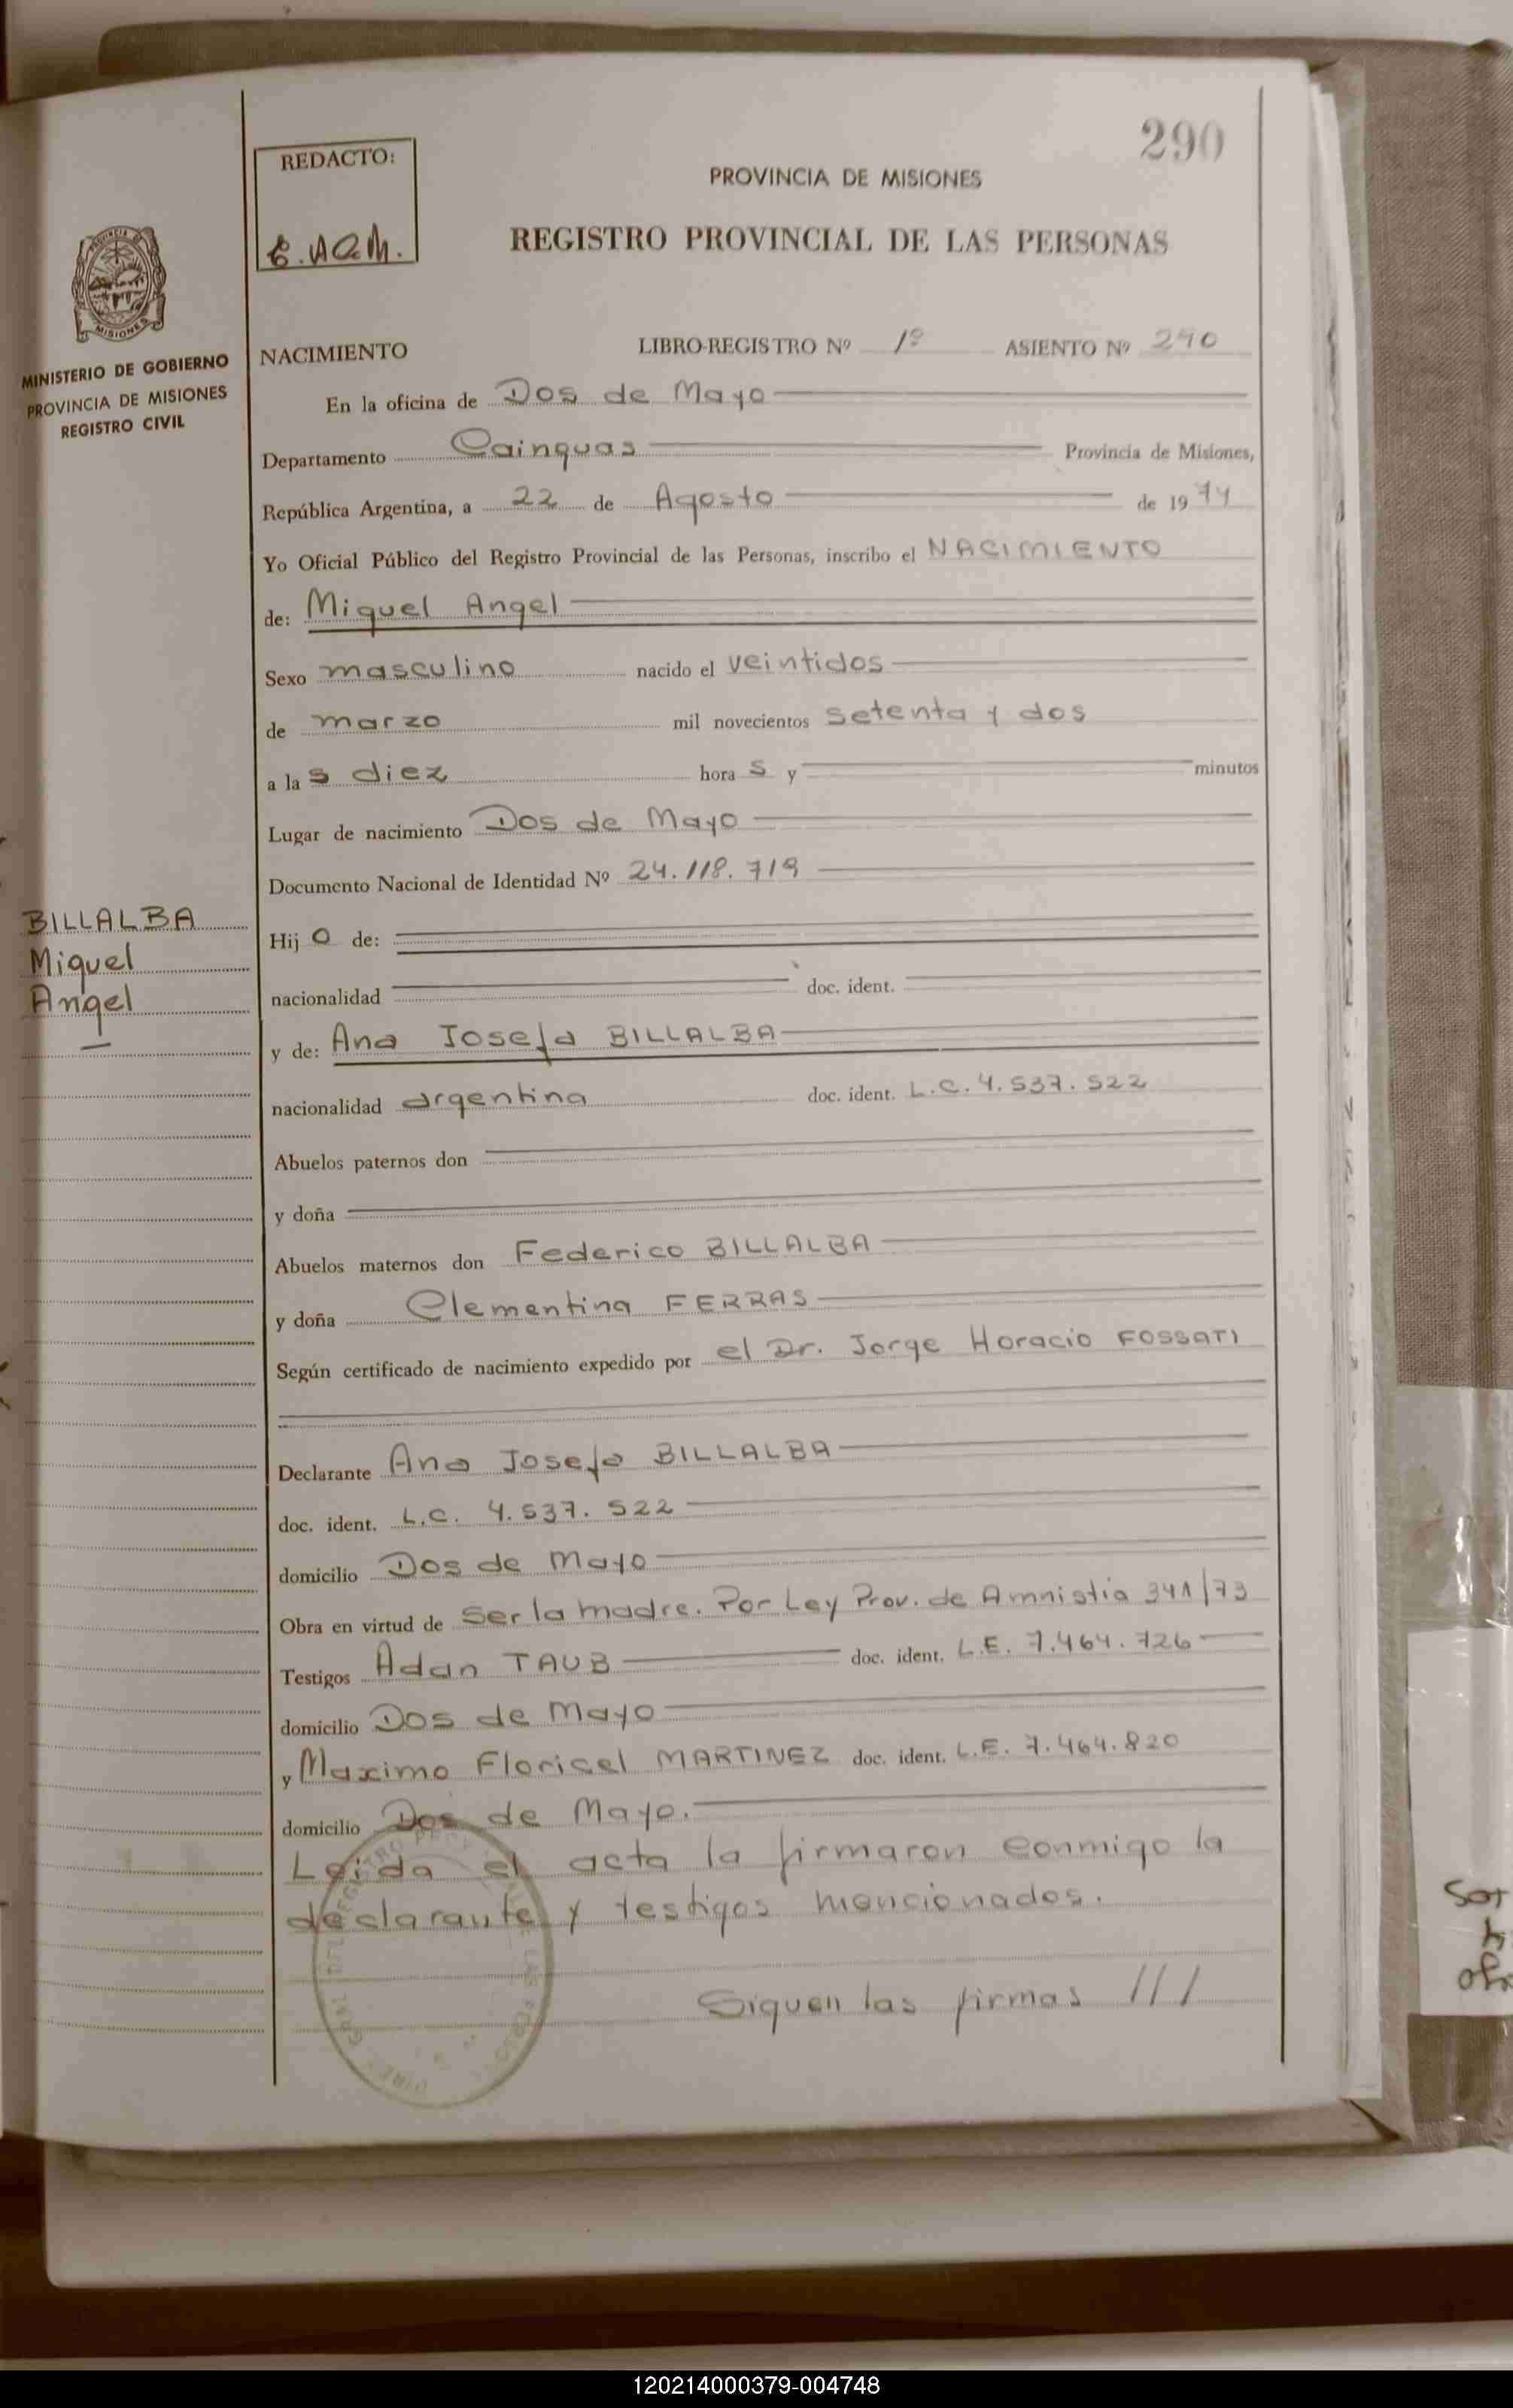 290
REDACTO:
PROVINCIA DE MISIONES
REGISTRO PROVINCIAL DE LAS PERSONAS
MISIONES
MINISTERIO DE GOBIERNO
PROVINCIA DE MISIONES
REGISTRO CIVIL
NACIMIENTO LIBRO-REGISTRO Nº 1º ASIENTO Nº 290
En la oficina de Dos de Mayo
Departamento Cainguas Provincia de Misiones,
República Argentina, a 22 de Agosto de 1974
Yo Oficial Público del Registro Provincial de las Personas, inscribo el NACIMIENTO
de: Miguel Angel
Sexo masculino nacido el veintidos
de marzo mil novecientos setenta y dos
a las diez horas y minutos
Lugar de nacimiento Dos de Mayo
Documento Nacional de Identidad Nº 24.118.719
BILLALBA
Miguel
Angel
Hijo de:
nacionalidad doc. ident.
y de: Ana Josefa BILLALBA
nacionalidad argentina doc. ident. L.C. 4.537.522
Abuelos paternos don
y doña
Abuelos maternos don Federico BILLALBA
y doña Clementina FERRAS
Según certificado de nacimiento expedido por el Dr. Jorge Horacio FOSSATI
Declarante Ana Josefa BILLALBA
doc. ident. L.C. 4.537.522
domicilio Dos de Mayo
Obra en virtud de ser la madre. Por Ley Prov. de Amnistia 341/73
Testigos Adan TAUB doc. ident. L.E. 7.464.726
domicilio Dos de Mayo
y Maximo Floricel MARTINEZ doc. ident. L.E. 7.464.820
domicilio Dos de Mayo.
Leida el acta la firmaron conmigo la
declarante y testigos mencionados.
Siguen las firmas ///
120214000379-004748